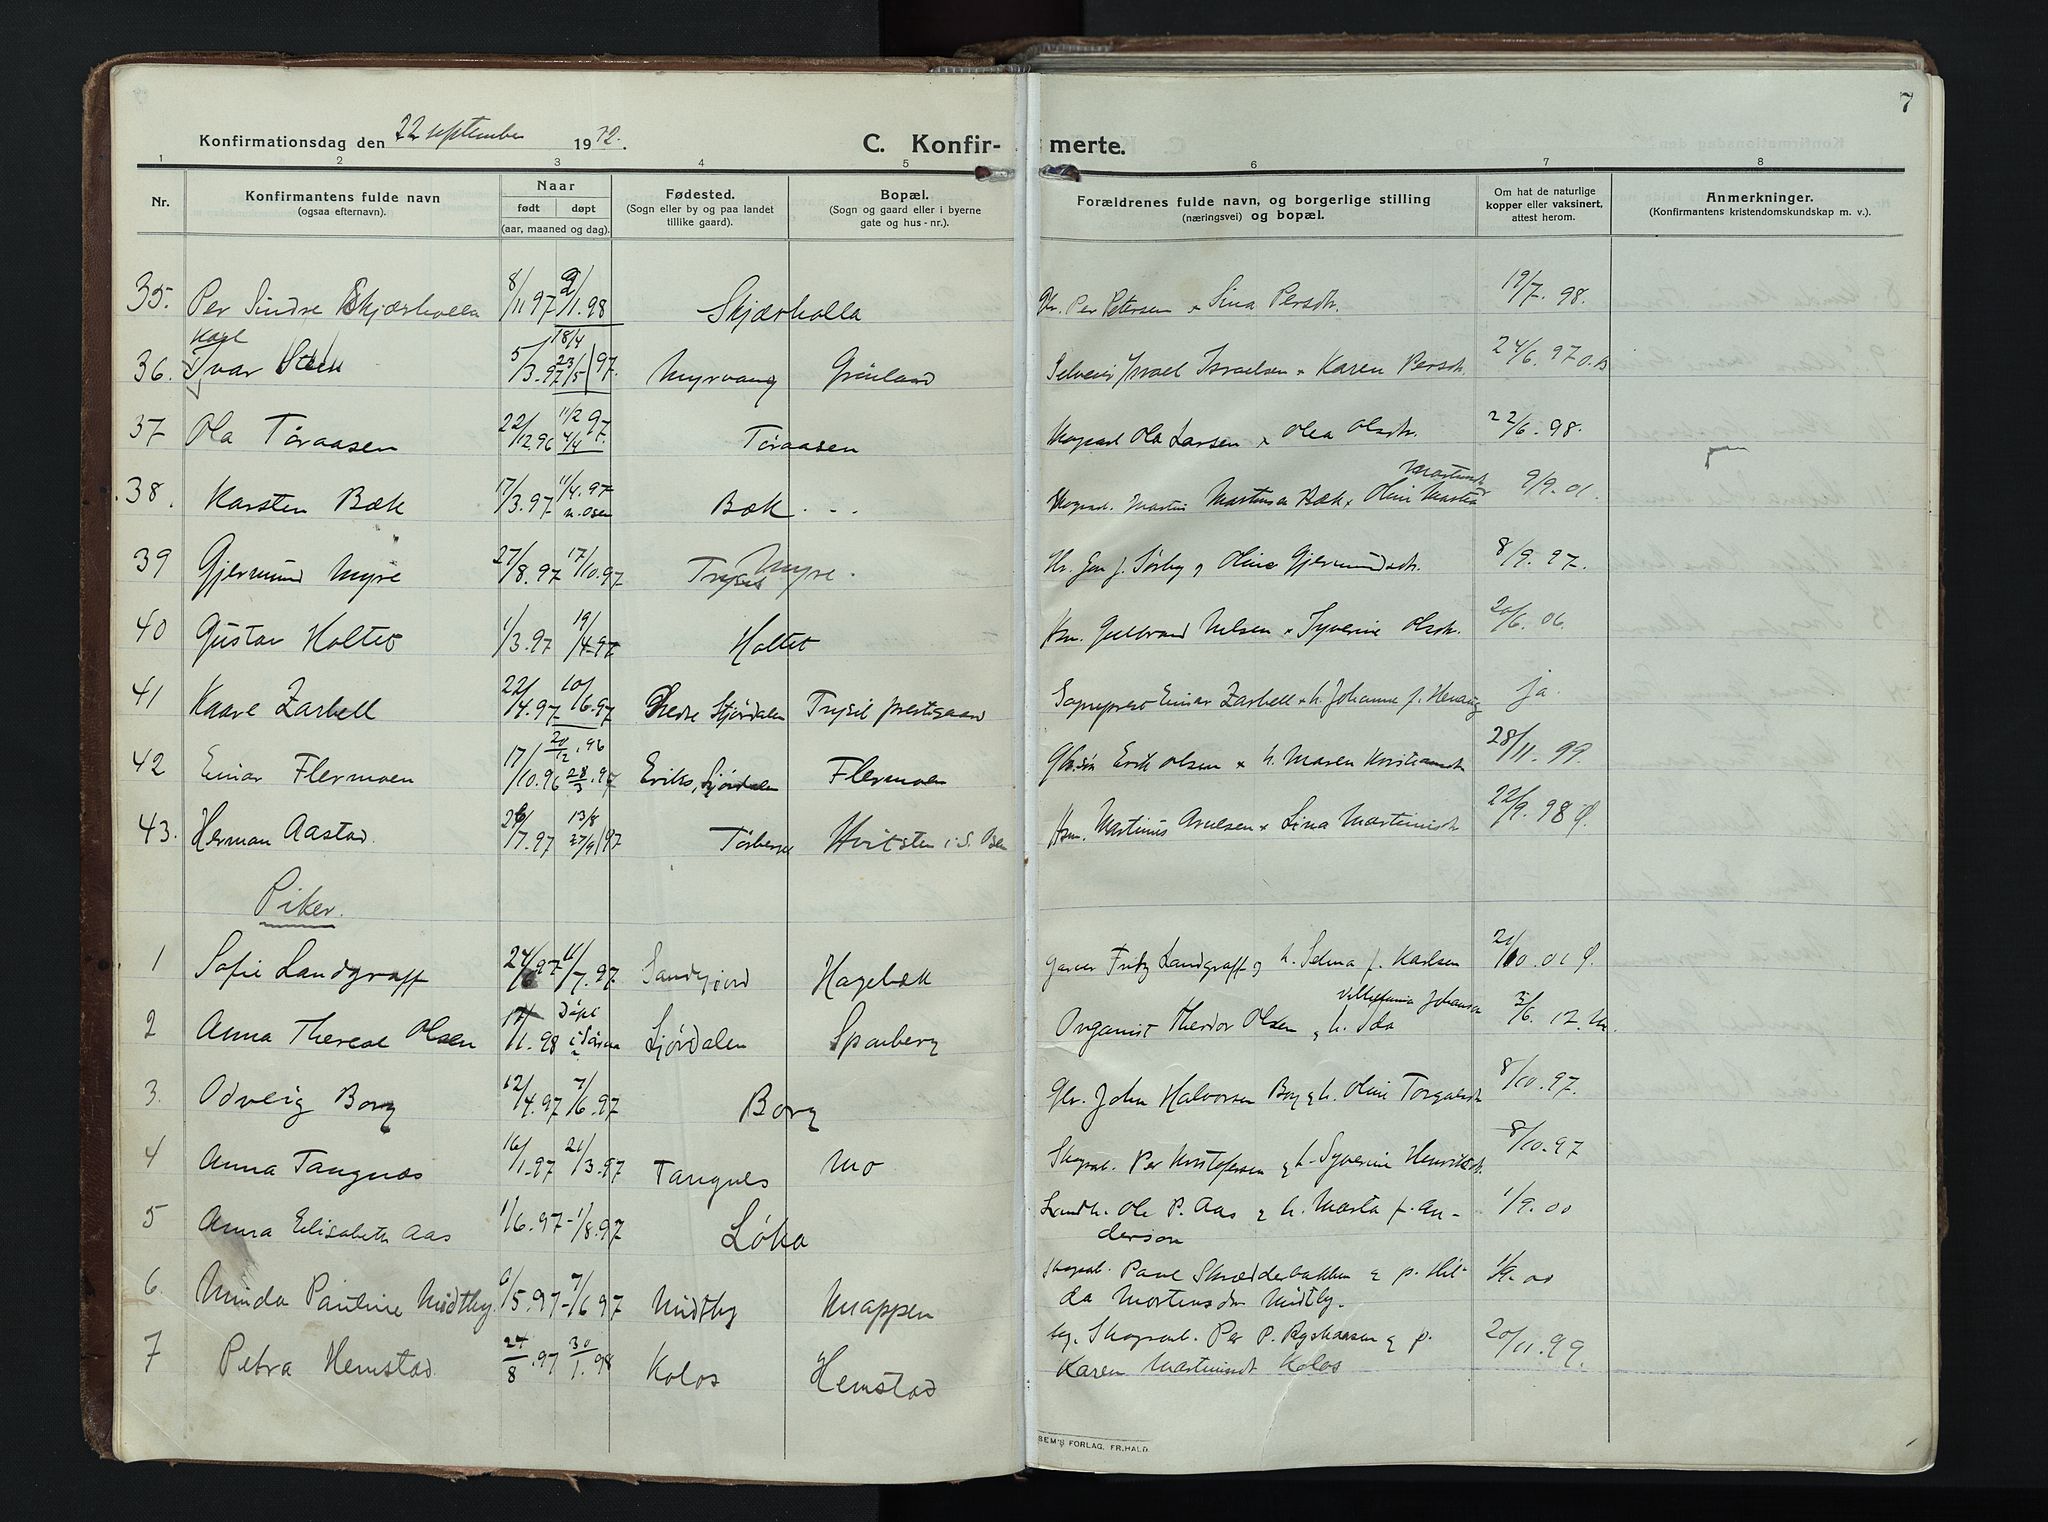 7
Konfirmationsdag den 22 september 1912.
C. Konfir- merte.
1 2 3 4 5 6 7 8
Nr. Konfirmantens fulde navn (ogsaa efternavn). Naar født døpt (aar, maaned og dag). Fødested. (Sogn eller by og paa landet tillike gaard). Bopæl. (Sogn og gaard eller i byerne gate og hus-nr.). Forældrenes fulde navn, og borgerlige stilling (næringsvei) og bopæl. Om hat de naturlige kopper eller vaksinert, attest herom. Anmerkninger. (Konfirmantens kristendomskundskap m. v.).
35. Per Sindre Skjærholla 8/11 97 2/1.98 Skjærholla Per Petersen Sina Persdtr. 19/7. 98.
36. Ivar Karl Steen 5/3.97 18/4 23/5 97. Myrvang Grönland Selveier Israel Israelsen Karen Persdt. 24/6. 97
37 Ola Töraasen 22/12.96 11/2 97 4/4 Töraasen Ola Larsen Olea Olsdtr. 22/6. 98.
38. Karsten Bæk 17/3.97 11/4.97 n. Osen Bæk Martin Martinsen Bæk Oline 9/9. 01.
39 Gjermund Myre 27/8.97 17/10.97 Trysil Myre. Jon J. Sörby og Oline Gjermundsdtr. 8/9. 97.
40 Gustav Holtet 1/3.97 19/4 97 Holtet Gulbrand Nilsen Syverine Olsdtr. 20/6. 06.
41 Kaare Zarbell 22/4.97 10/6.97 Nedre Stjördalen Trysil prestegaard Sogneprest Einar Zarbell h. Johanne f. ja.
42 Einar Flermoen 17/10.96 20/12.96 28/3.97 Flermoen Erik Olsen h. Maren Kristiansdtr 28/11. 99.
43. Herman Aastad. 26/7.97 13/8 27/9 97 Törberget Hvitsten i S. Osen Martinus Arnesen Lina Martinsdtr 22/9. 98
Piker.
1 Sofie Landgraff 24/6 97 11/7.97. Sandefjord Hagebæk Garver Fritz Landgraff og h. Selma f. Karlsen 21/10. 01
2 Anna Therese Olsen 17/11.98 Döpt i Ljørdalen Sponberg Organist Theodor Olsen h. Ida Vilhelmina Johansen 5/6. 12.
3. Odveig Borg 12/4.97 7/6.97 Borg John Halvorsen Borg h. Oline Torgalsdtr 8/10.97.
4 Anna Tangnæs 16/1.97 21/3.97 Tangnes Mo Skogsarb. Per Kristofersen h. Syverine Henriksdtr. 8/10.97
5 Anna Elisabeth Aas 1/6.97 1/8.97 Löka Landh. Ole P. Aas h. Marta f. An-
derson 1/9.00
6. Minda Pauline Midtby. 6/5.97 7/6 97 Midtby Knappen Skogsarb. Paul Skrædderbakken p. Hil-
da Mortensdtr Midtby. 1/9.00
7 Petra Hemstad. 24/8.97 30/1.98 Kolos Hemstad Skogsarb. Per P. p.
Karen Kolos 20/11.99.
SEM'S FORLAG, FR.HALD.